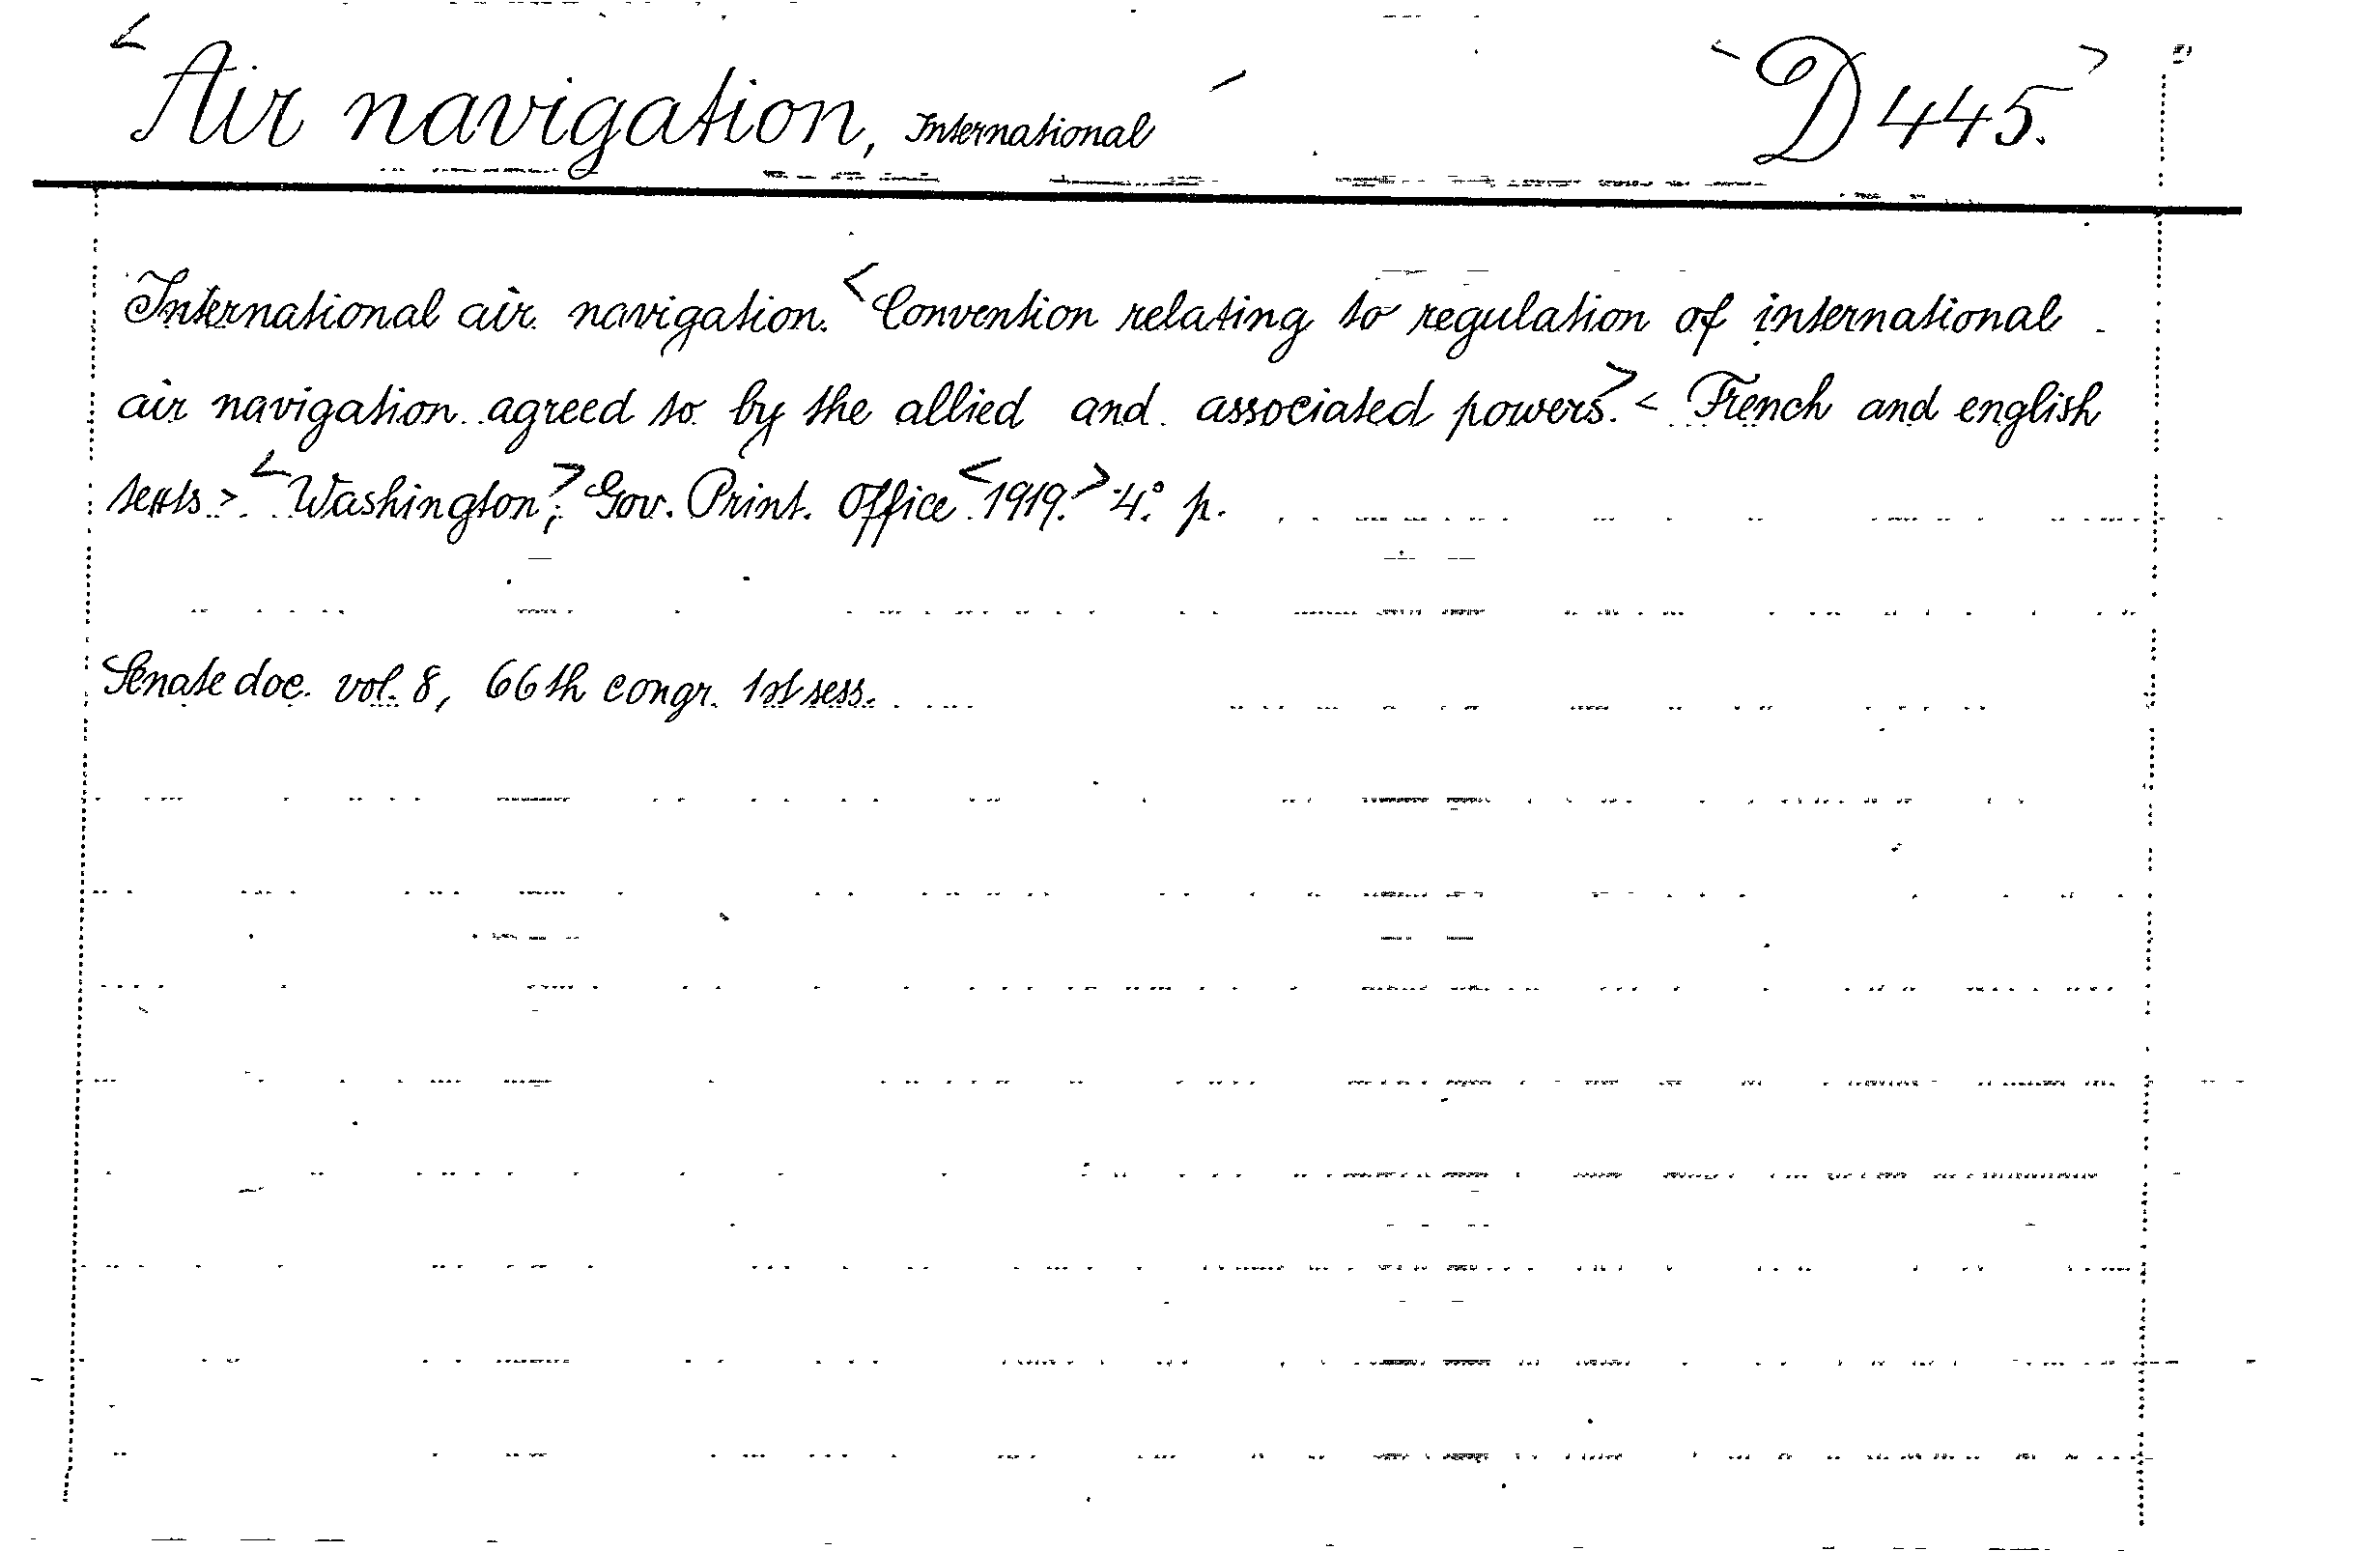 < Air navigation, International > < D 445. >
International air navigation. < Convention relating to regulation of international
air navigation agreed to by the allied and associated powers. > < French and english
texts > < Washington, > Gov. Print. Office < 1919. > 4.° p.
Senate doc. vol. 8, 66th congr. 1st sess.